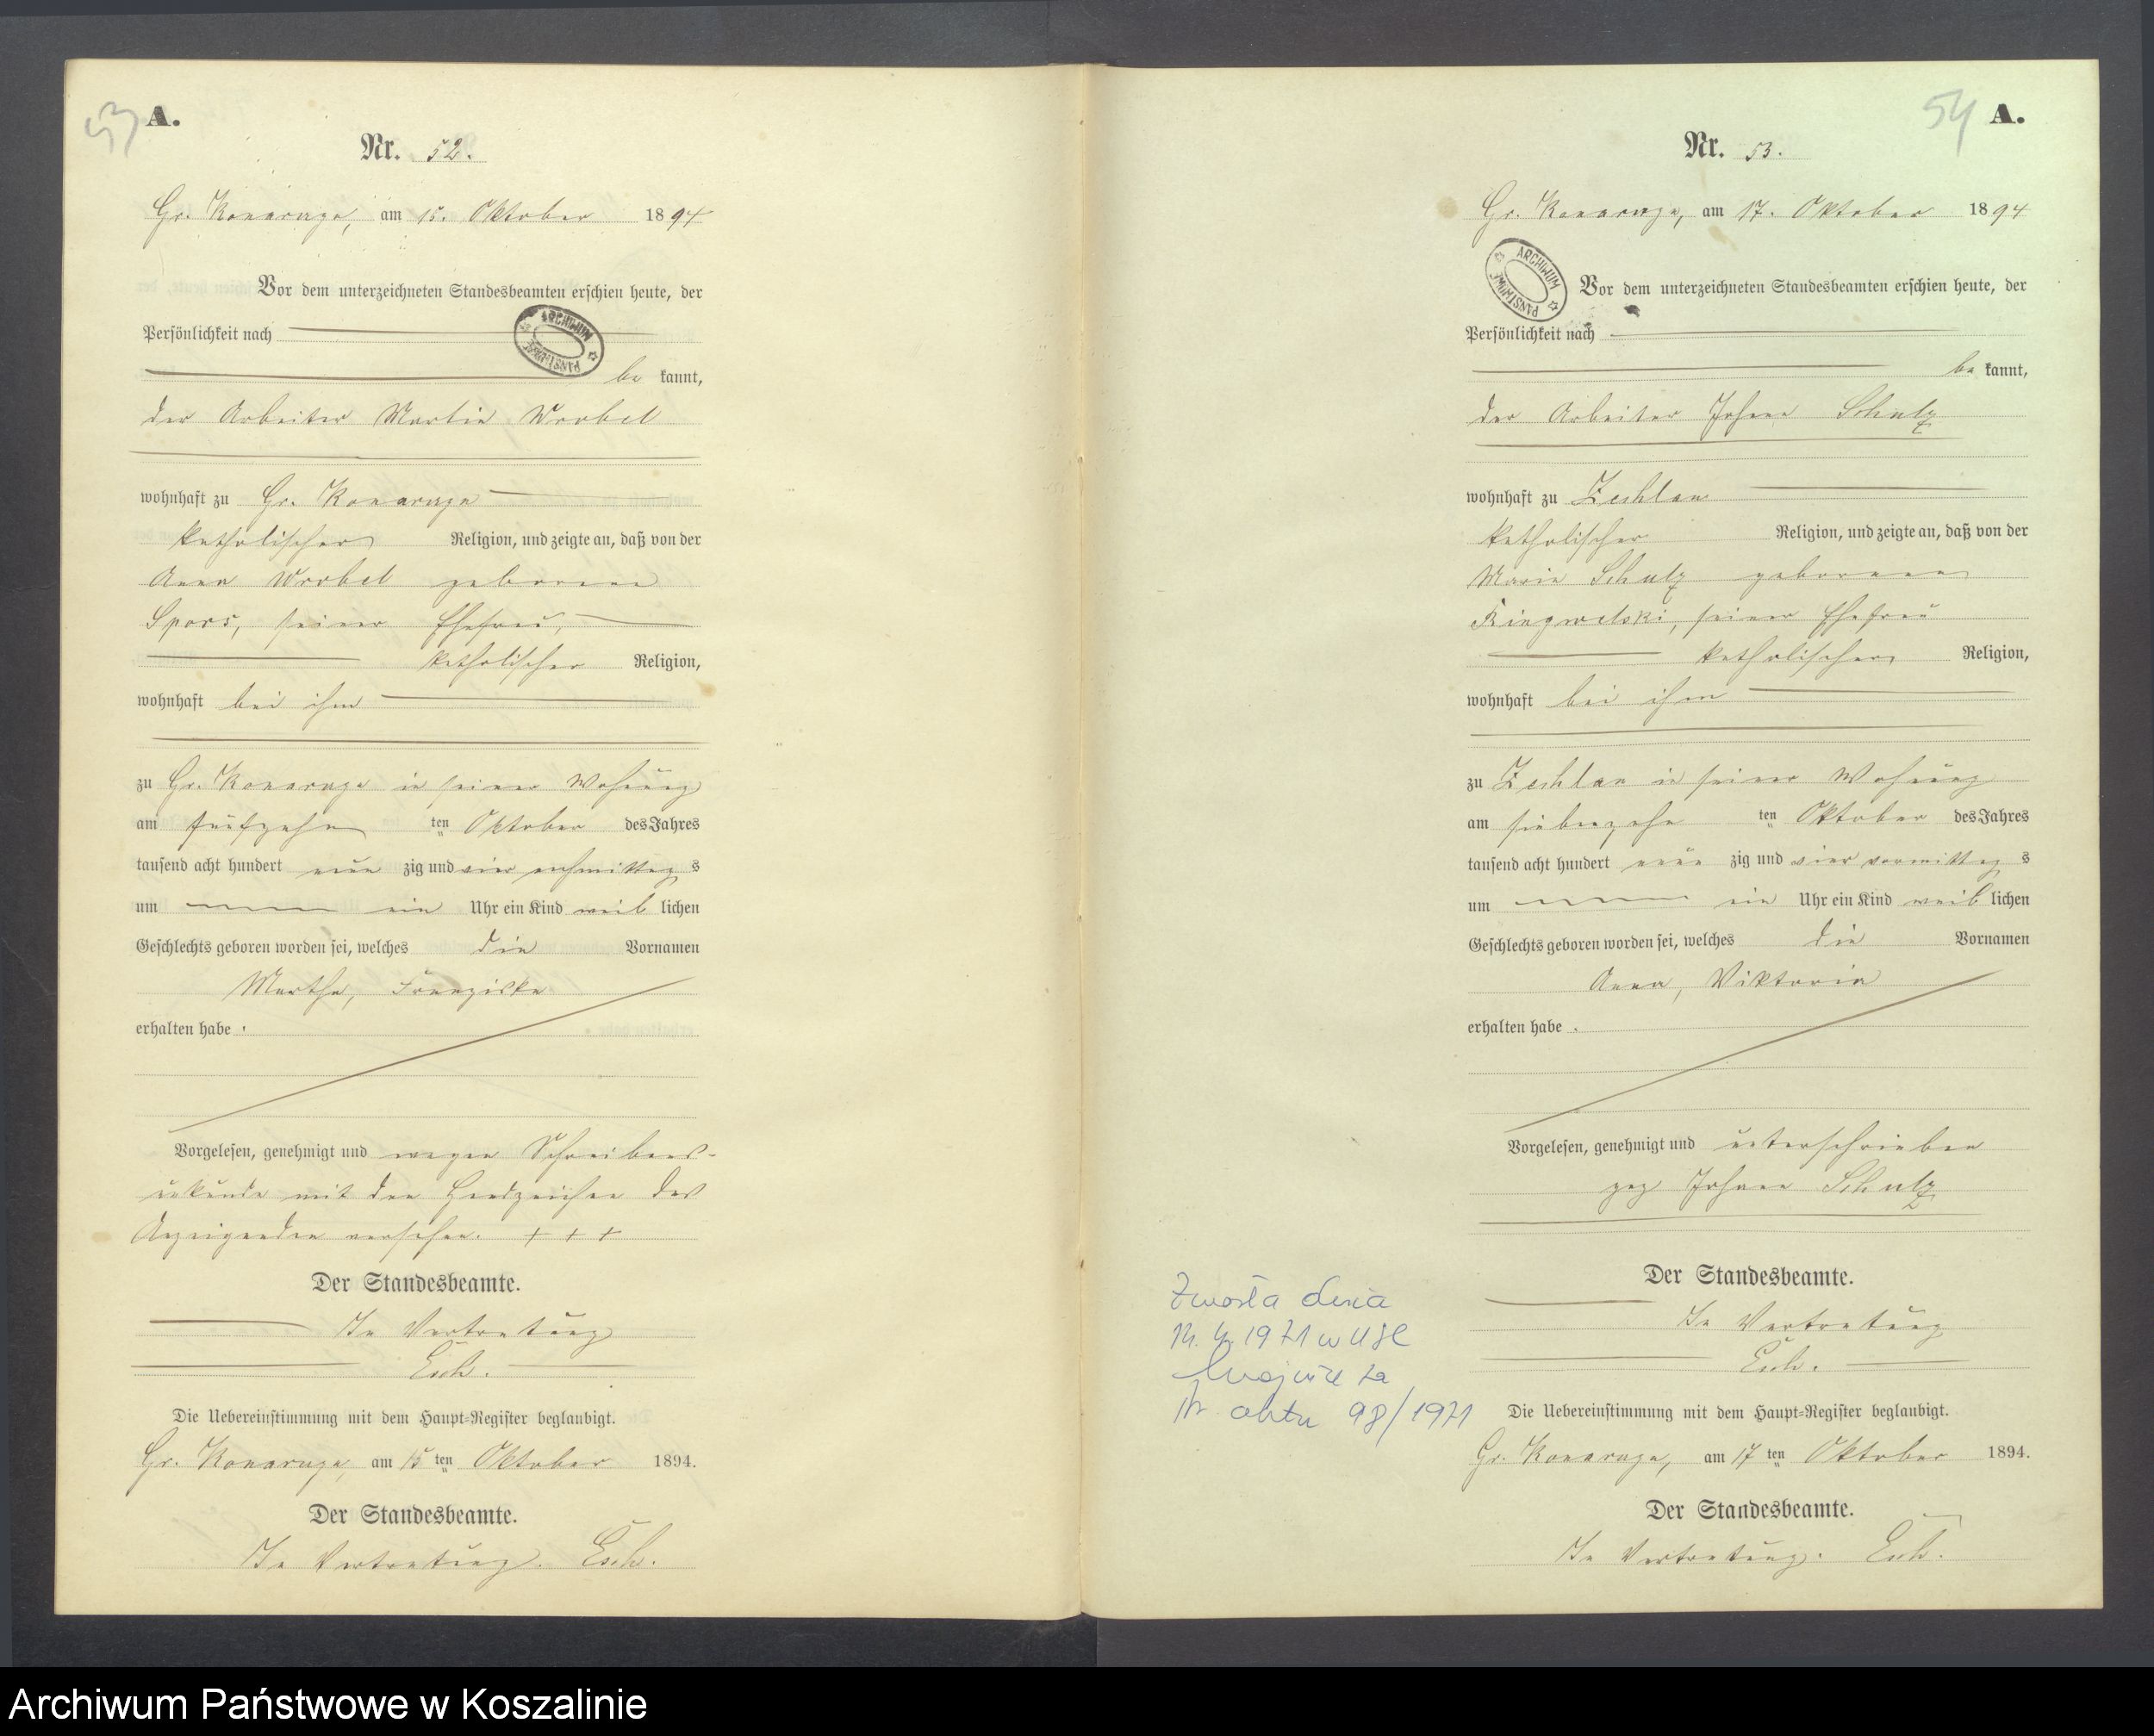 53
A.
Nr. 52.
Gr. Konarzyn, am 15. Oktober 1894
Vor dem unterzeichneten Standesbeamten erschien heute, der
Persönlichkeit nach
ARCHIWUM PAŃSTWOWE
be kannt,
der Arbeiter Martin Wrobel
wohnhaft zu Gr. Konarzyn
katholischer Religion, und zeigte an, daß von der
Anna Wrobel geborene
Spors, seiner Ehefrau,
katholischer Religion,
wohnhaft bei ihm
zu Gr. Konarzyn in seiner Wohnung
am fünfzehn ten Oktober des Jahres
tausend acht hundert neun zig und vier nachmittag s
um ein Uhr ein Kind weib lichen
Geschlechts geboren worden sei, welches die Vornamen
Martha, Franziska
erhalten habe .
Vorgelesen, genehmigt und wegen Schreibens-
unkunde mit den Handzeichen des
Anzeigenden versehen. + + +
Der Standesbeamte.
In Vertretung
Esch.
Die Uebereinstimmung mit dem Haupt=Register beglaubigt.
Gr. Konarzyn, am 15 ten Oktober 1894.
Der Standesbeamte.
In Vertretung. Esch.
54
A.
Nr. 53.
Gr. Konarzyn, am 17. Oktober 1894
ARCHIWUM PAŃSTWOWE
Vor dem unterzeichneten Standesbeamten erschien heute, der
Persönlichkeit nach
be kannt,
der Arbeiter Johann Schulz
wohnhaft zu Zechlau
katholischer Religion, und zeigte an, daß von der
Maria Schulz geborenen
seiner Ehefrau
katholischer Religion,
wohnhaft bei ihm
zu Zechlau in seiner Wohnung
am siebenzehn ten Oktober des Jahres
tausend acht hundert neun zig und vier vormittag s
um ein Uhr ein Kind weib lichen
Geschlechts geboren worden sei, welches die Vornamen
Anna, Viktoria
erhalten habe .
Vorgelesen, genehmigt und unterschrieben
gez Johann Schulz
Der Standesbeamte.
In Vertretung
Esch.
Zmarła dnia
1971 w USC
Chojnice za
Nr aktu 98/1971
Die Uebereinstimmung mit dem Haupt=Register beglaubigt.
Gr. Konarzyn, am 17 ten Oktober 1894.
Der Standesbeamte.
In Vertretung. Esch.
Archiwum Państwowe w Koszalinie